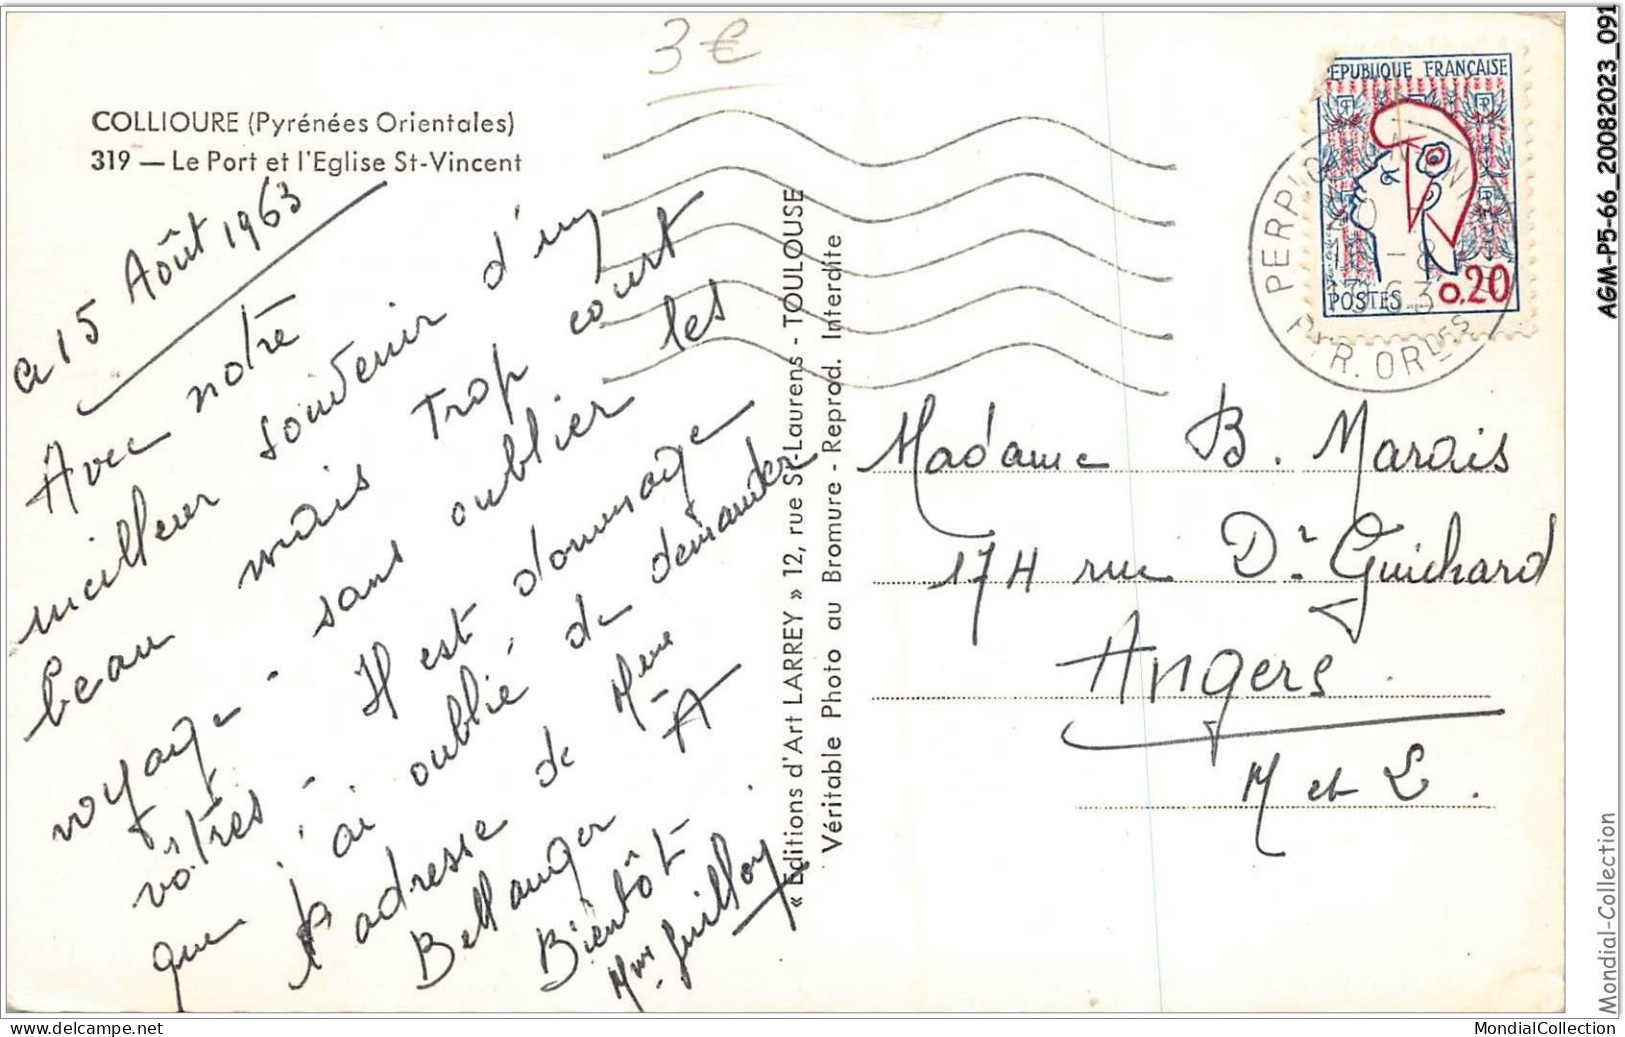 3 €
COLLIOURE (Pyrénées Orientales)
319 — Le Port et l'Eglise St-Vincent
a 15 Août 1963
Avec notre
meilleur souvenir d'un
beau mais trop court
voyage - sans oublier les
vôtres - Il est dommage
que j'ai oublié, de demander
l'adresse de Mme
Bellanger A
Bientôt
Mme Guilloy
« Editions d'Art LARREY » 12, rue St-Laurens - TOULOUSE
Véritable Photo au Bromure - Reprod. Interdite
REPUBLIQUE FRANÇAISE
POSTES 0,20
PERPIGNAN
-8
1963
PYR. ORLES
Madame B. Marais
17H rue Dr Guichard
Angers
M et L.
AGM-P5-66_20082023_091
Mondial-Collection
www.delcampe.net
MondialCollection